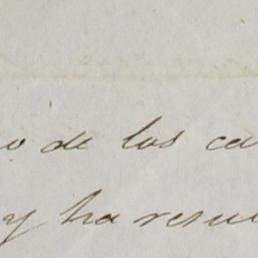 o de los ca
y ha resul